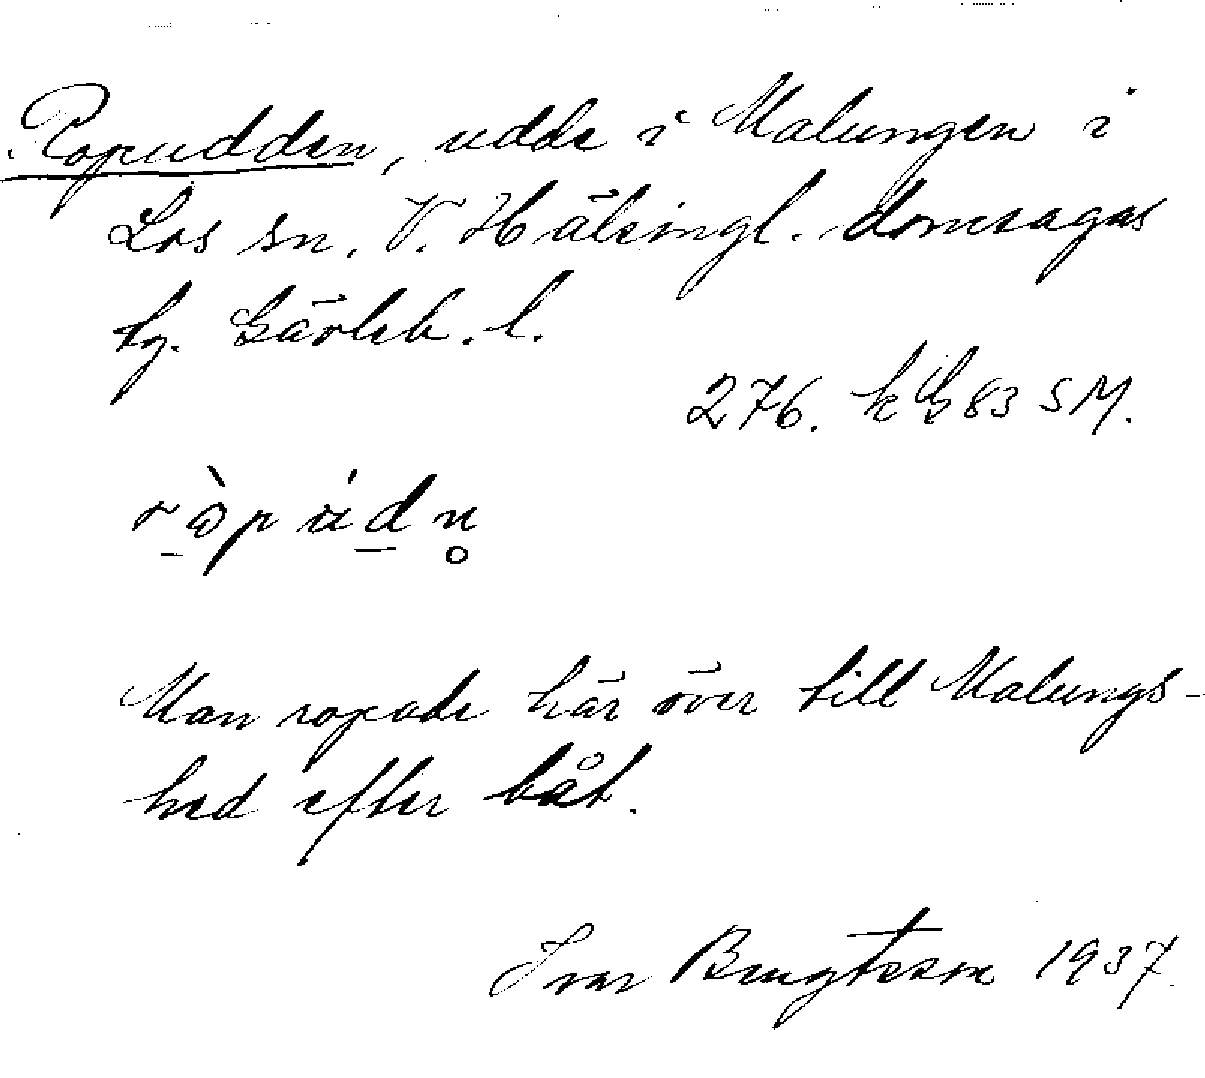 Ropudden, udde i Malungen i
Los sn. V. Hälsingl. domsagas
tg. Gävleb. l.
276. k G 83 SM.
ròpúdn̥
Man ropade här över till Malungs-
hed efter båt.
Ivar Bengtsson 1937